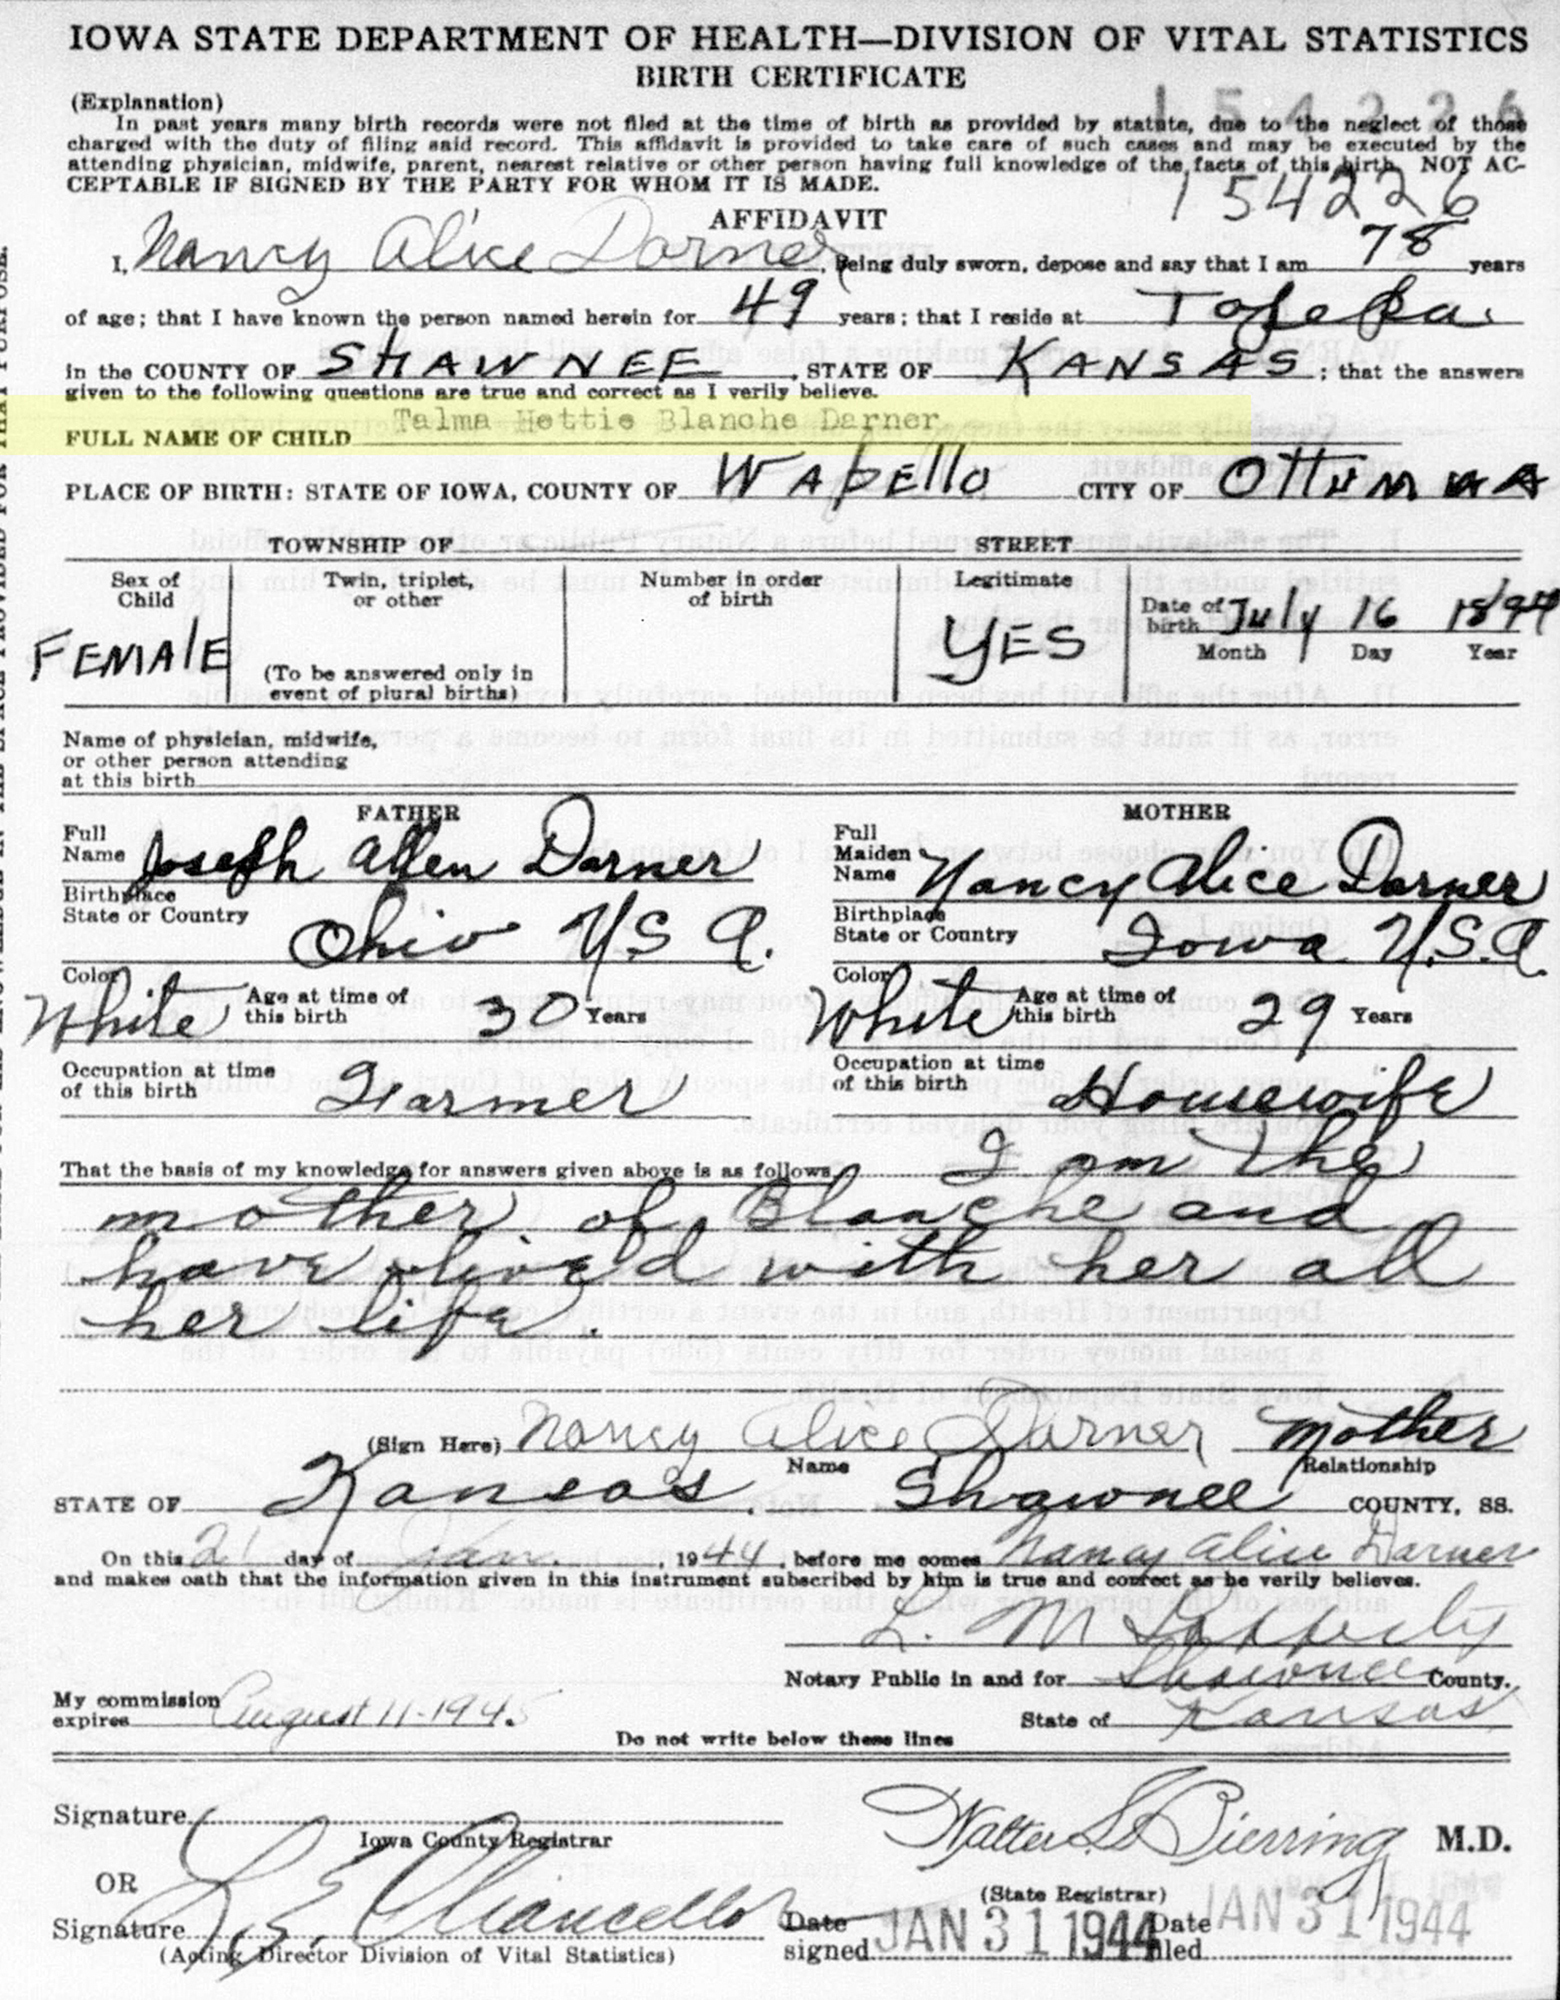 IOWA STATE DEPARTMENT OF HEALTH—DIVISION OF VITAL STATISTICS
BIRTH CERTIFICATE
(Explanation)
154226
In past years many birth records were not filed at the time of birth as provided by statute, due to the neglect of those
charged with the duty of filing said record. This affidavit is provided to take care of such cases and may be executed by the
attending physician, midwife, parent, nearest relative or other person having full knowledge of the facts of this birth. NOT AC-
CEPTABLE IF SIGNED BY THE PARTY FOR WHOM IT IS MADE.
154226
AFFIDAVIT
I, Nancy Alice Darner, being duly sworn, depose and say that I am 78 years
of age; that I have known the person named herein for 49 years; that I reside at Topeka.
in the COUNTY OF SHAWNEE, STATE OF KANSAS; that the answers
given to the following questions are true and correct as I verily believe.
FULL NAME OF CHILD Talma Hettie Blanche Darner
PLACE OF BIRTH: STATE OF IOWA, COUNTY OF WApEllo CITY OF OttumwA
TOWNSHIP OF STREET
Sex of Child FEMAlE
Twin, triplet, or other
(To be answered only in event of plural births)
Number in order of birth
Legitimate YES
Date of birth July 16 1894
Month Day Year
Name of physician, midwife,
or other person attending
at this birth
FATHER MOTHER
Full Name Joseph Allen Darner Full Maiden Name Nancy Alice Darner
Birthplace State or Country Ohio U.S.A. Birthplace State or Country Iowa U.S.A.
Color White Age at time of this birth 30 Years Color White Age at time of this birth 29 Years
Occupation at time of this birth Farmer Occupation at time of this birth Housewife
That the basis of my knowledge for answers given above is as follows I am the
mother of Blanche and
have lived with her all
her life.
(Sign Here) Nancy Alice Darner Mother
Name Relationship
STATE OF Kansas. Shawnee COUNTY, SS.
On this 21 day of Jan., 1944, before me comes Nancy Alice Darner
and makes oath that the information given in this instrument subscribed by him is true and correct as he verily believes.
L. M.
Notary Public in and for Shawnee County.
My commission expires August 11-1945
State of Kansas
Do not write below these lines
Signature
Iowa County Registrar
Walter L. Bierring M.D.
OR
(State Registrar)
Signature L. E. Chancellor
(Acting Director Division of Vital Statistics)
Date signed JAN 31 1944 Date filed JAN 31 1944